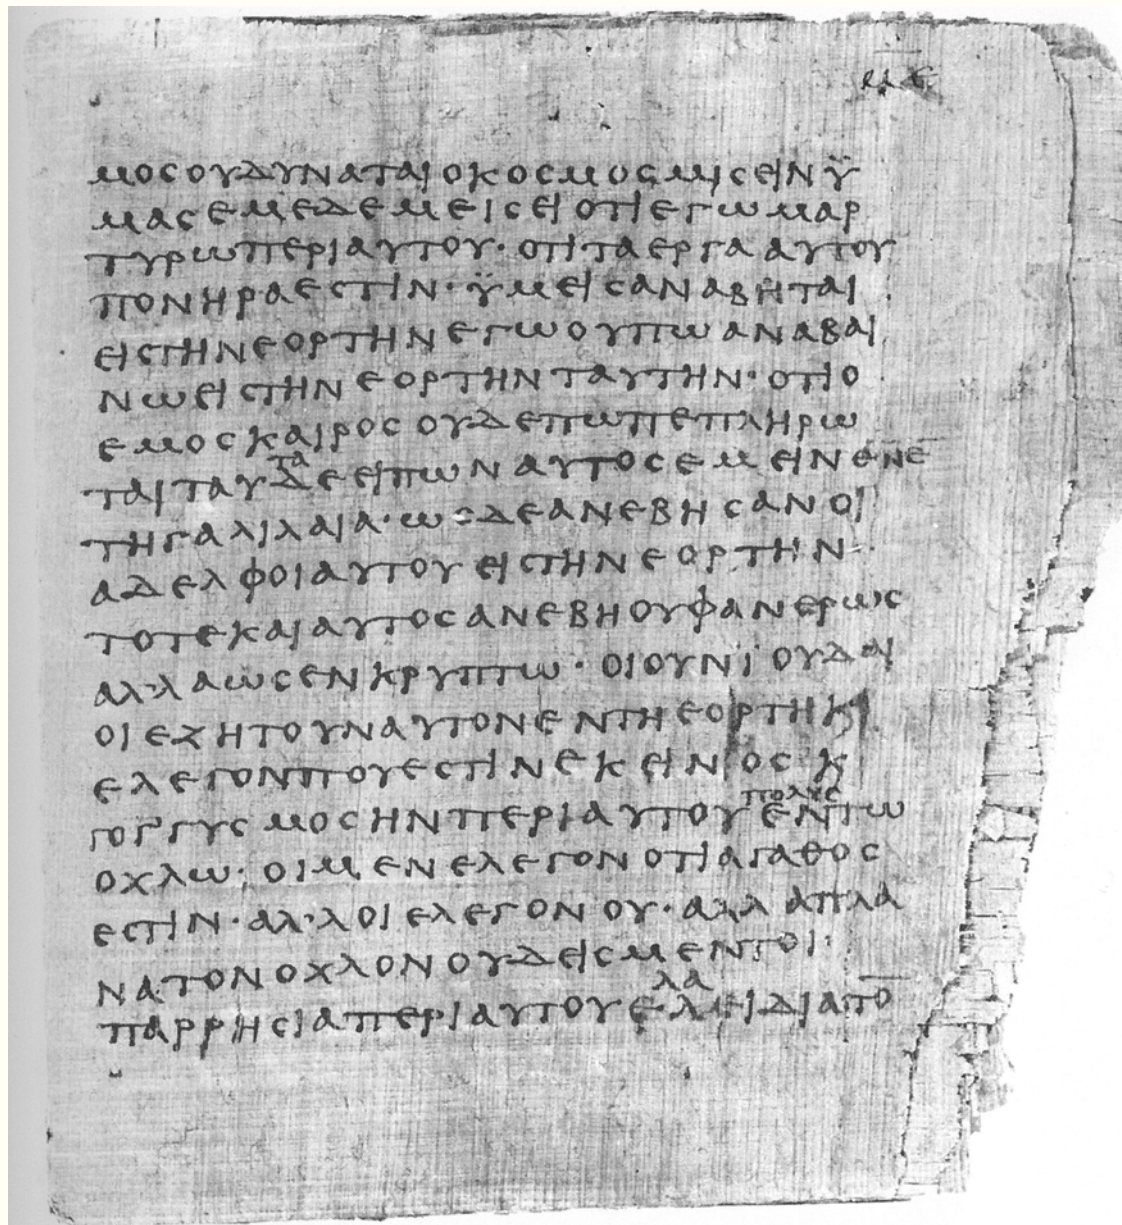 μοσουδυναταιοκοσμοσμισεινϋ
μασεμεδεμεισειοτιεγωμαρ
τυρωπεριαυτου· οτιταεργααυτου
πονηραεστιν· ϋμεισαναβηται
ειστηνεορτηνεγωουπωαναβαι
νωειστηνεορτηνταυτην· οτιο
εμοσκαιροσουδεπωπεπληρω
ταιταυ`τα´δεειπωναυτοσεμεινενε
τηγαλιλαια· ωσδεανεβησανοι
αδελφοιαυτουειστηνεορτην
τοτεκαιαυτοσανεβηουφανερωσ
αλ᾽λαωσενκρυπτω· οιουνϊουδαι
οιεζητουναυτονεντηεορτηκ
ελεγονπουεστινεκεινοσκ
γογ᾽γυσμοσηνπεριαυτου`πολυσ´εντω
οχλω· οιμενελεγονοτιαγαθοσ
εστιν· αλ᾽λοιελεγονου· αλλαπλα
νατονοχλονουδεισμεντοι
παρρησιαπεριαυτουε`λα´λειδιατο̅